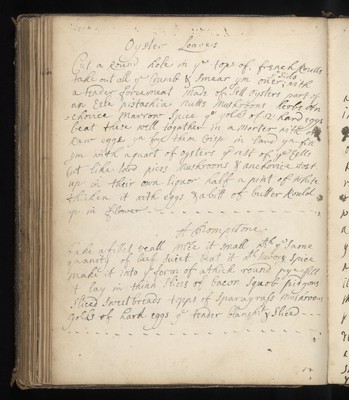 Oyster Loaves
Cut a round hole in ye tops of french Roulls
take out all ye crumb & smear ym over ye sids with
a tender forcemeat made of sett oysters part of
an Eele pistachia nutts mushrooms herbs An
chovies marrow spice ye yolks of 12 hard eggs
beat these well together in a morter with one
raw egge yn fry them Crisp in lard yn fill
ym with a quart of oysters ye rest of ye Eele
cut like lard pices mushrooms & anchovies tost
up in their own liquor half a pint of white
thicken it with eggs & a bitt of butter Rould
up in flower
A Pompitone
Take a fillet veall mice it small with ye same
quantity of beef suiet beat it with savory spice
make it into ye form of a thick round pye fill
it lay in thinn slices of bacon squob pidgons
sliced sweetbreads topps of sparagrass mushrooms
yolks of hard eggs ye tender blancht & sliced